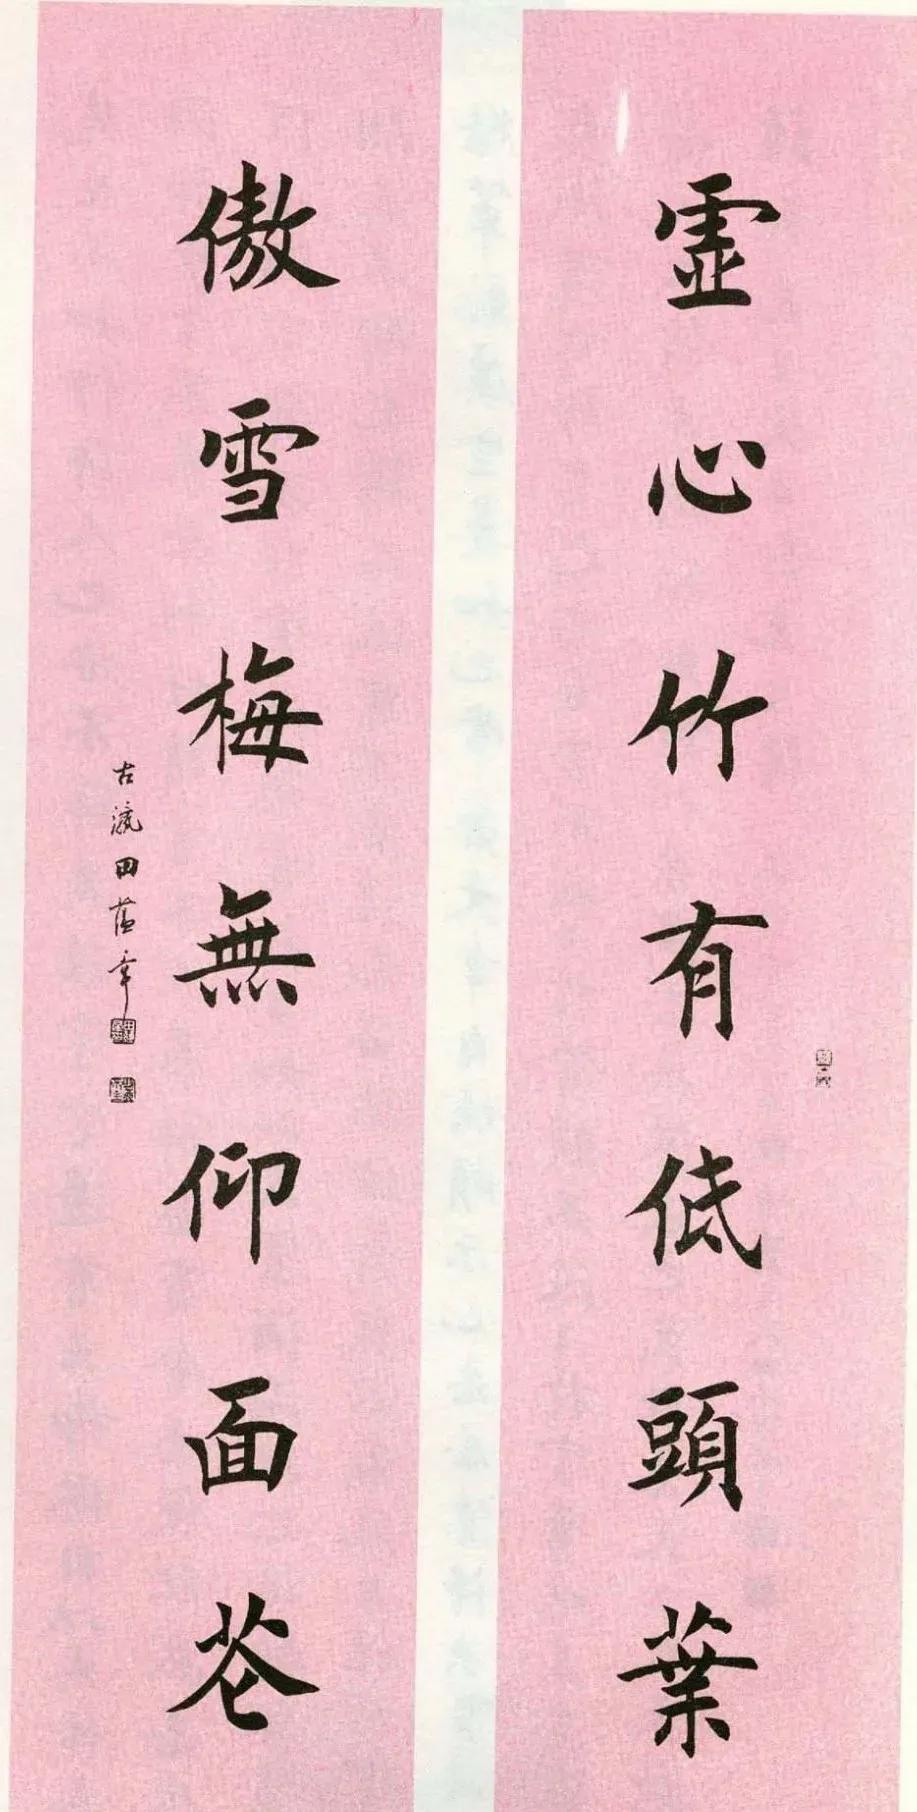 虛心竹有低頭葉
傲雪梅無仰面花
古瀛田蕴章